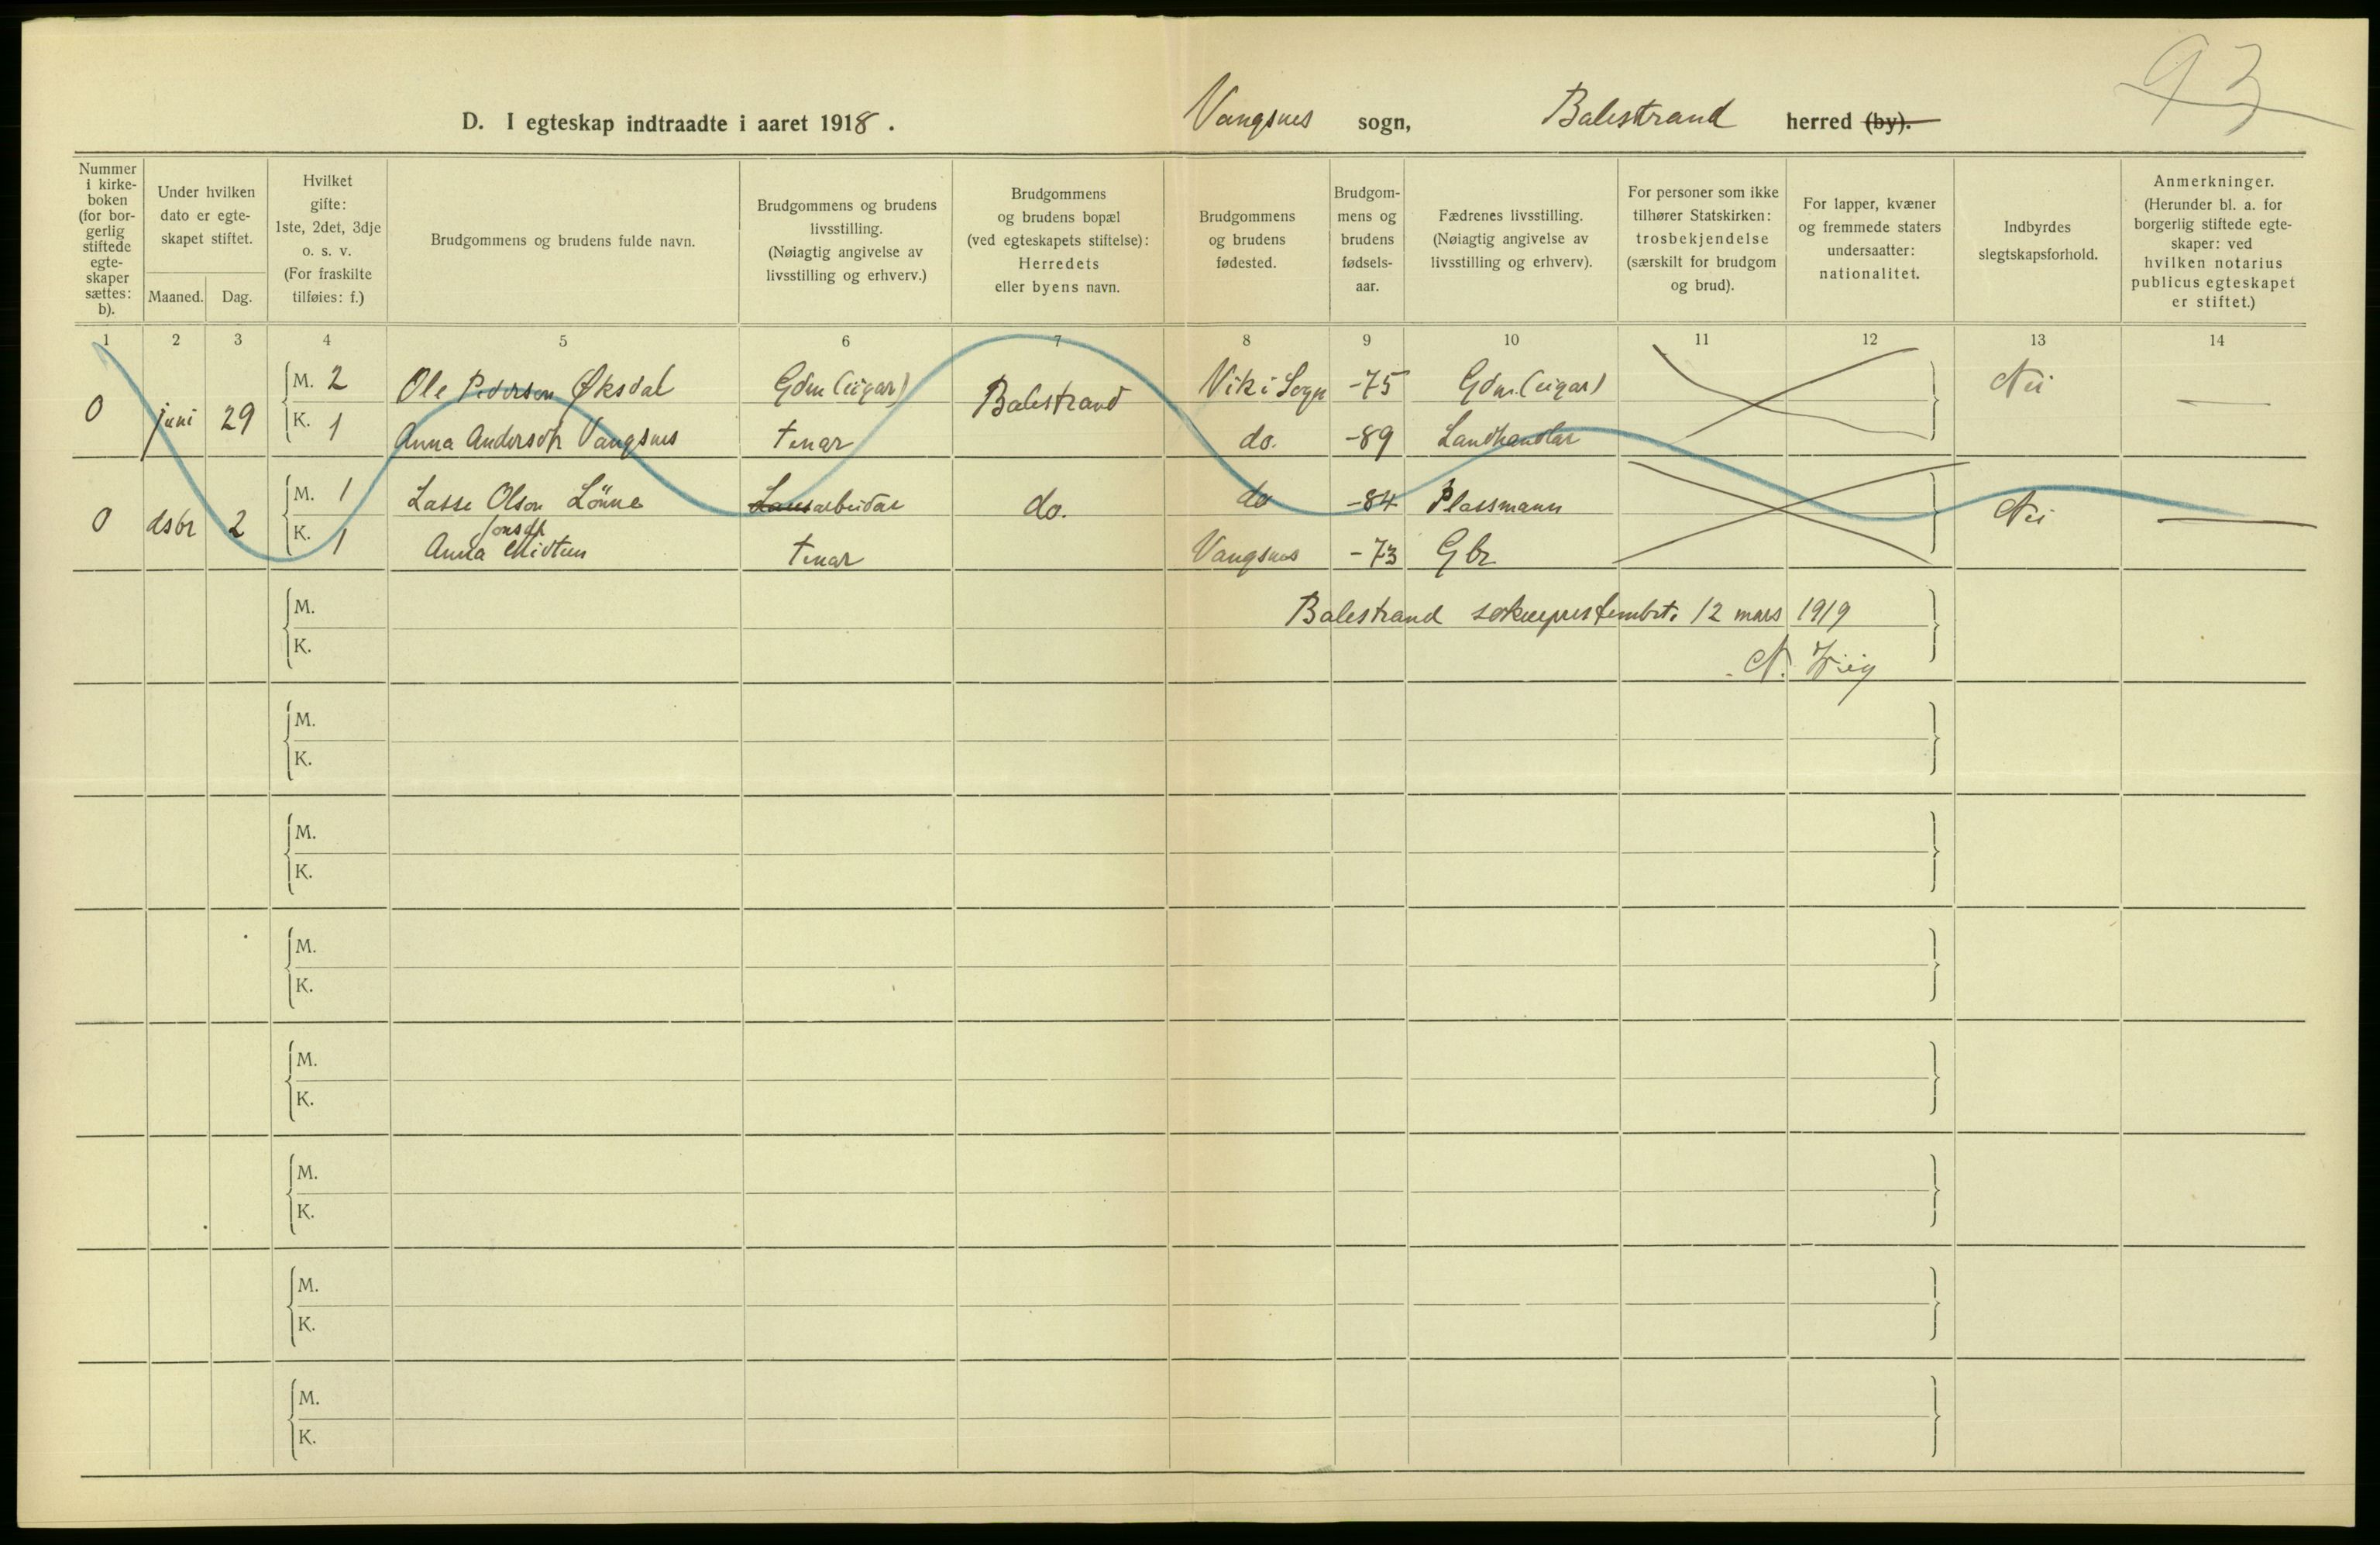 93
D. I egteskap indtraadte i aaret 1918. Vangsnes sogn, Balestrand herred (by).
Nummer i kirkeboken (for borgerlig stiftede egteskaper sættes: b).
Under hvilken dato er egteskapet stiftet.
Maaned. Dag.
Hvilket gifte: 1ste, 2det, 3dje o. s. v. (For fraskilte tilføies: f.)
Brudgommens og brudens fulde navn.
Brudgommens og brudens livsstilling. (Nøiagtig angivelse av livsstilling og erhverv.)
Brudgommens og brudens bopæl (ved egteskapets stiftelse): Herredets eller byens navn.
Brudgommens og brudens fødested.
Brudgommens og brudens fødselsaar.
Fædrenes livsstilling. (Nøiagtig angivelse av livsstilling og erhverv).
For personer som ikke tilhører Statskirken: trosbekjendelse (særskilt for brudgom og brud).
For lapper, kvæner og fremmede staters undersaatter: nationalitet.
Indbyrdes slegtskapsforhold.
Anmerkninger. (Herunder bl. a. for borgerlig stiftede egteskaper: ved hvilken notarius publicus egteskapet er stiftet.)
1 2 3 4 5 6 7 8 9 10 11 12 13 14
0 juni 29 M. 2 Ole Pederson Øksdal Gdm (eigar) Balestrand Vik i Sogn -75 Gdm. (eigar) Nei —
K. 1 Anna Andersdtr Vangsnes tenar do. -89 Landhandlar
0 dsbr 2 M. 1 Lasse Olson Lönne Lausarbeidar do. do -84 Plassmann Nei —
K. 1 Anna Jonsdt Midtun tenar Vangsnes -73 Gbr
M. Balestrand sokneprestembt. 12 mars 1919
K. N.
M.
K.
M.
K.
M.
K.
M.
K.
M.
K.
M.
K.
M.
K.